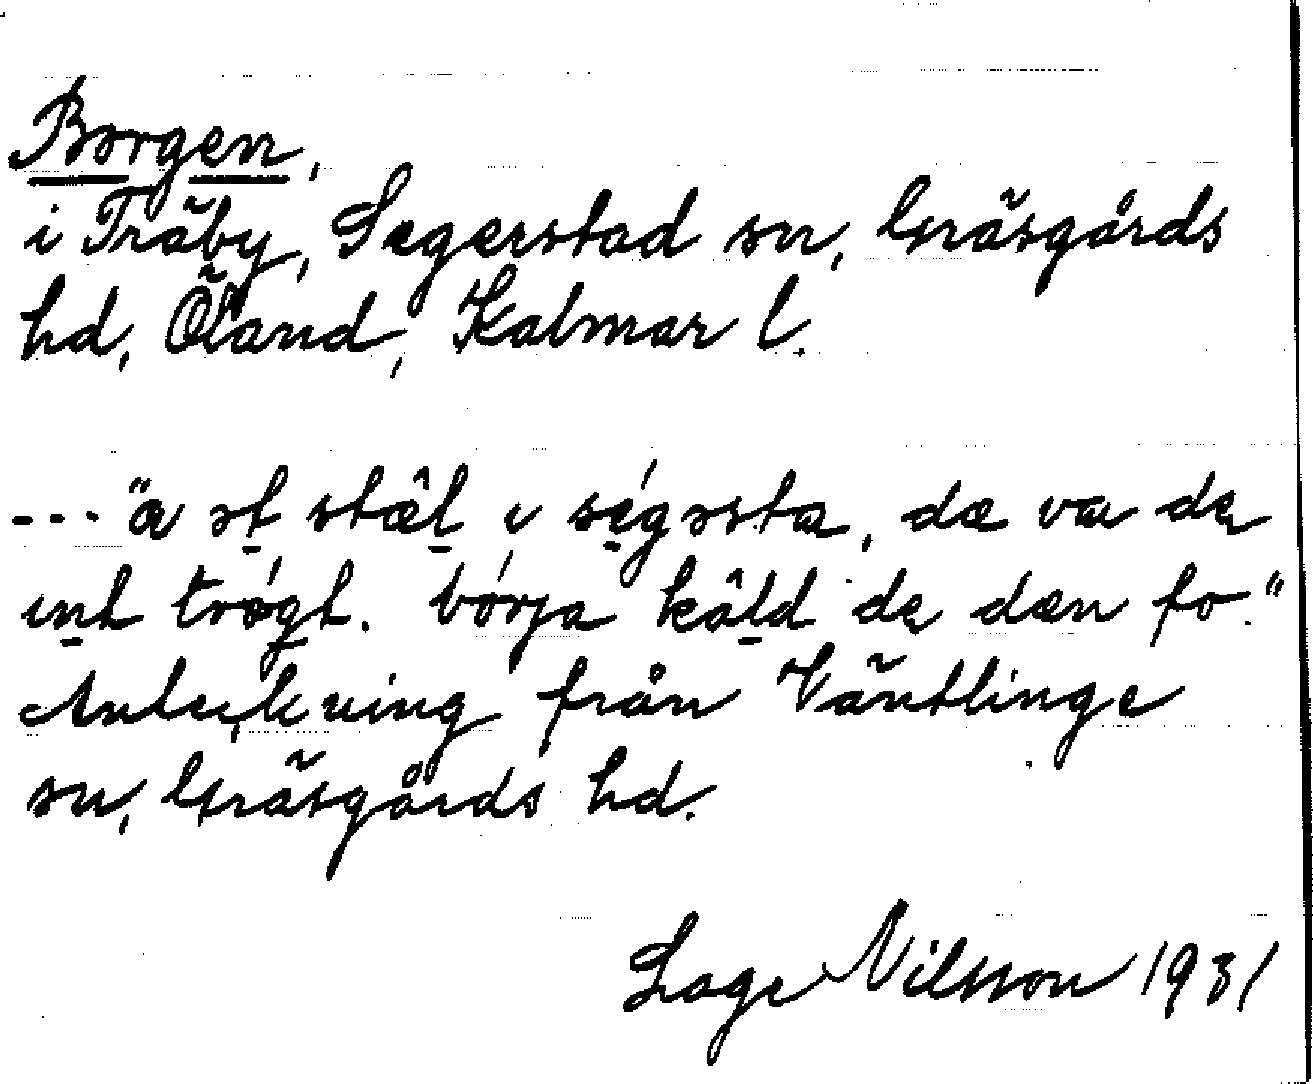 Borgen,
i Träby, Segerstad sn, Gräsgårds
hd, Öland, Kalmar l.
--- "a ət stæ̂l ıségəsta, dæ va de
ınt trǿgt. bórja kâld de dæn fo."
Anteckning från Väntlinge
sn, Gräsgårds hd.
Lage Nilsson 1931